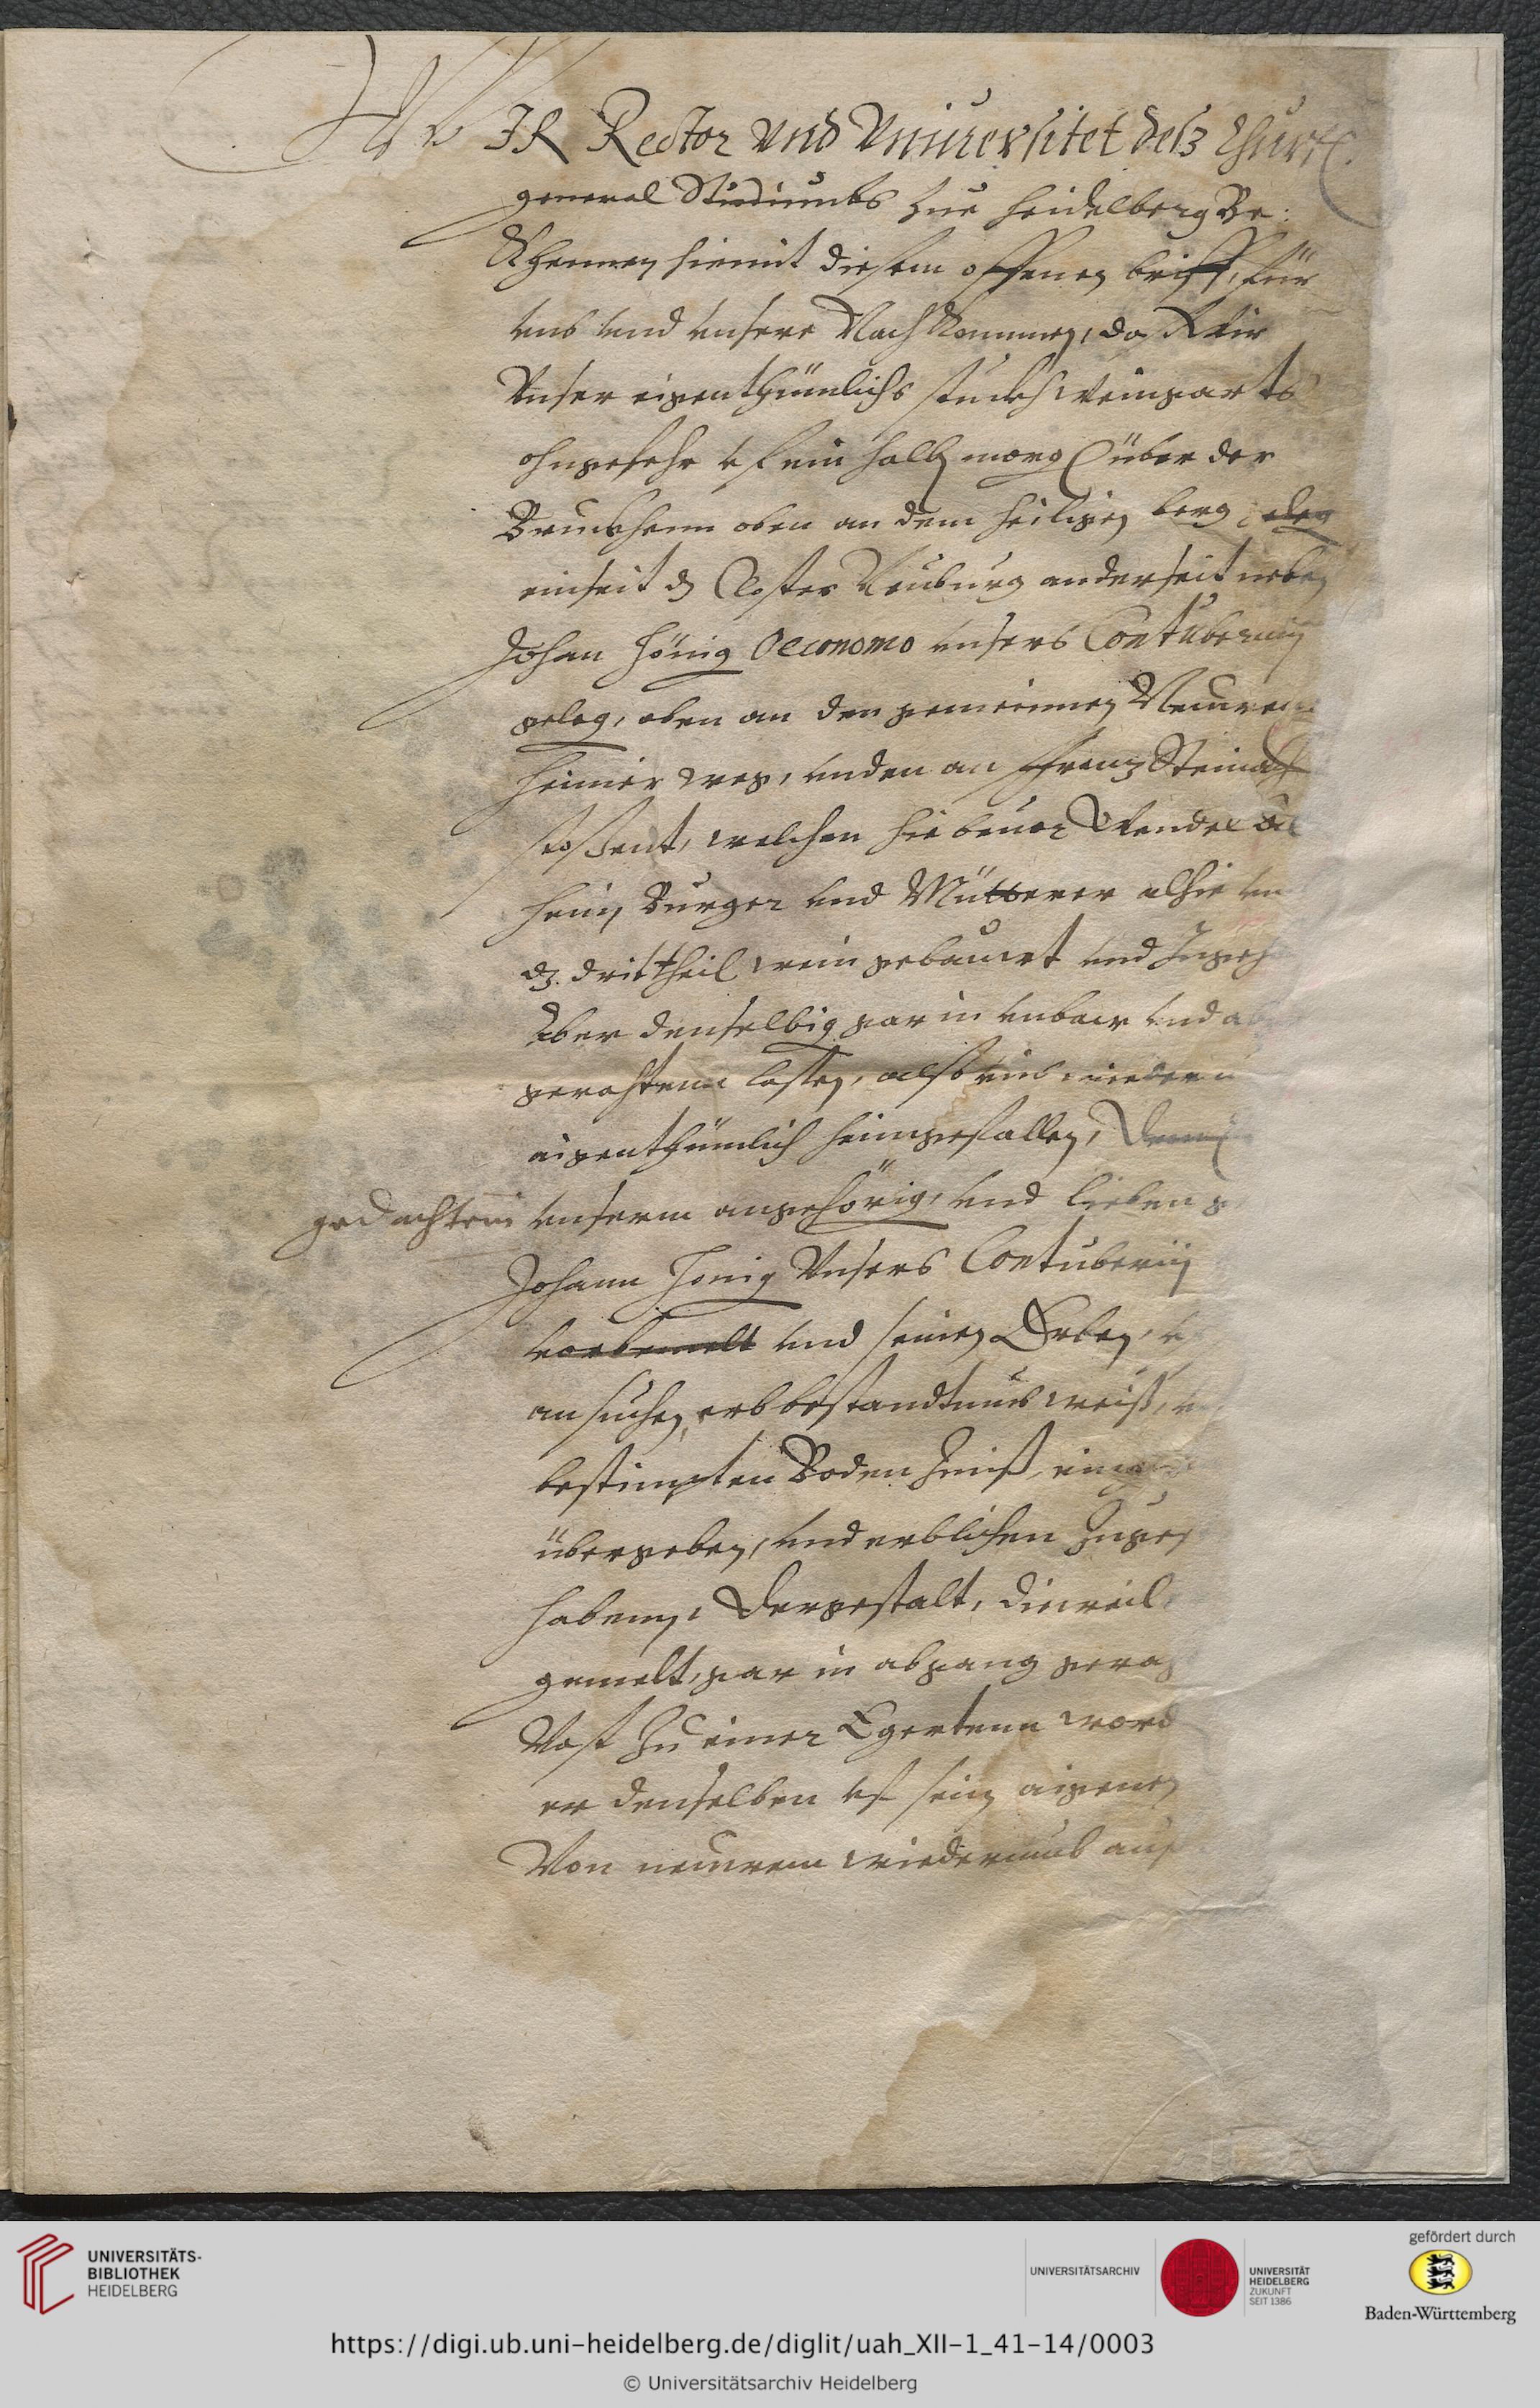 WIR Rector vnd Vniuersitet deß Churf.
general Studiumbs zue Heidelberg Be:
khennen hiemit diesem offenen brieff, für
vns vnd vnsere Nachkommen, da Wir
Vnser eigenthümlichs stückh Weingarts
ohngefehr vf ein halb morg über der
Bruckhenn oben an dem heiligen berg,
einseit dz Closter Neuburg anderseit neben
Johan Hönig Oeconomo vnsers Contubernij
geleg, oben an den gemeinen
heimer weg, vnden an Frantz Steina
stoßent, welchen hiebeuor Wendel
heim Burger vnd allhie
dz. drittheil wein gebauwt vnd
Aber denselbig gar in vnbaw vnd
gerahtenn lassen, also vns wieder
eigenthümlich heimgefallen,
gedachtem vnserm angehörig, vnd lieben
Johann Hönig Vnsers Contubernij
vorbemelt vnd seinen Erben,
ansuchen, erbbestandtnus weiß,
bestimpten Boden Zinß,
übergeben, vnd erblichen
habenn, Dergestalt, dieweil
gemelt, gar in abgang
Vast zu einer Egertenn
er denselben vf sein eigenen
Von neuwem wiederumb
UNIVERSITÄTS-
BIBLIOTHEK
HEIDELBERG
UNIVERSITÄTSARCHIV
UNIVERSITÄT
HEIDELBERG
ZUKUNFT
SEIT 1386
gefördert durch
Baden-Württemberg
https://digi.ub.uni-heidelberg.de/diglit/uah_XII-1_41-14/0003
© Universitätsarchiv Heidelberg